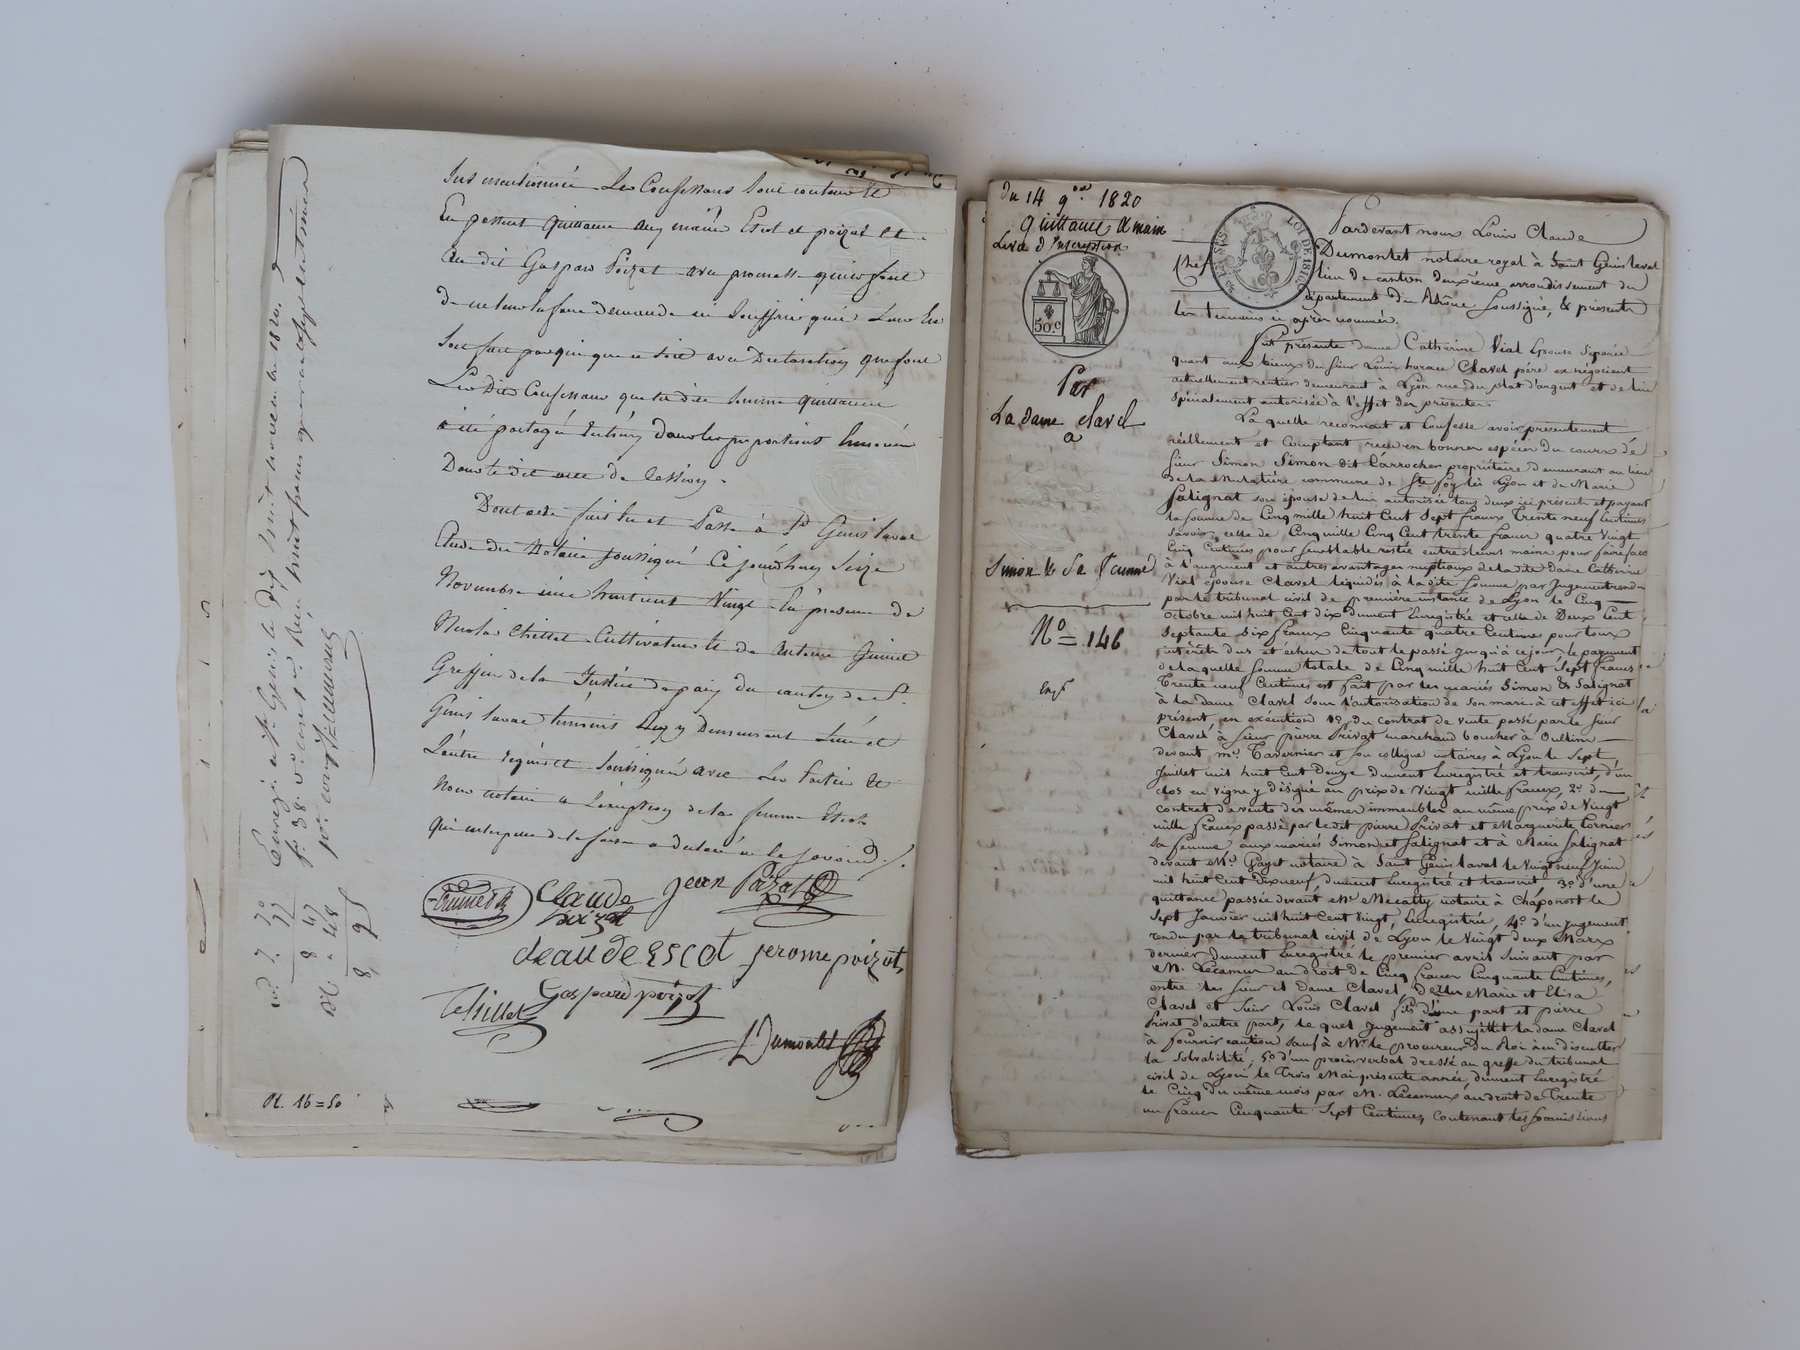 sus mentionnée Les Confessans sont contens et
En passent quittance auxy mariés Escot et poizat et
Au dit Gaspard Poizat avec promesse qu'ils font
de ne leur en faire demande ni souffrir qu'il Leur En
soit fait par qui que ce soit avec Declaration que font
Les Dits Confessans que la dite somme quittancée
a été partagée Entr'eux dans les proportions
Dans le dit acte de Cession.
Dont acte fait lu et Passé à St Genis laval
Etude du Notaire soussigné Ce jourd'huy Seize
Novembre mil huit cent Vingt En présence de
Nicolas Thillet Cultivateur et de Antoine
Greffier de la Justice de paix du canton de St
Genis laval témoins Demeurant
L'autre Requis et Soussignés avec Les Parties et
Nous notaire à L'exception de la femme Escot
qui enquise de le faire a déclaré ne le savoir
Claude poizat
jean Poizat
cleaude Escot jerome poizat
Gaspard poizat
Thillet
LDumontet
16=50
Enregé à St Genis le Dix huit novembre 1820,
fo 38 vo
8 47
" 48
8, 95
du 14 9bre 1820
Quittance & main
Levée d'Inscription
50.c
LOI DE 1816
Par
La dame Clavel
a
Simon & Sa femme
No = 146
Pardevant nous Louis Claude
Dumontet notaire royal à Saint Genis laval
Chef lieu de canton deuxième arrondissement du
département du Rhône soussigné, & présents
les témoins ci après nommés.
Fut présente dame Catherine Vial épouse séparée
quant aux biens du sieur Louis horace Clavel père ex négociant
actuellement rentier demeurant à Lyon rue du plat d'argent et de lui
spécialement autorisée à l'effet des présentes.
La quelle reconnait et Confesse avoir présentement
réellement et Comptant reçu en bonnes espèces du cours de
sieur Simon Simon dit Larrocher propriétaire demeurant au lieu
de la Mulatière commune de Ste foy lès Lyon et de Marie
Salignat son épouse de lui autorisée tous deux ici présents et payant
la somme de Cinq mille huit Cent Sept francs Trente neuf Centimes
savoir, celle de Cinq mille Cinq Cent trente francs quatre Vingt
Cinq Centimes pour semblable restée entre leurs mains pour faire face
à l'augment et autres avantages nuptiaux de la dite Dame Catherine
Vial épouse Clavel liquidés à la dite Somme par Jugement rendu
par le tribunal civil de première instance de Lyon le Cinq
octobre mil huit Cent dix dument Enregistré et celle de Deux Cent
Septante Six francs Cinquante quatre Centimes pour tous
intérêts dus et échus de tout le passé jusqu'à ce jour, le payement
de la quelle somme totale de Cinq mille huit Cent Sept francs
Trente neuf Centimes est fait par les mariés Simon & Salignat
à la dame Clavel sous l'autorisation de son mari à cet effet ici
présent, en exécution 1o du contrat de vente passé par le sieur
Clavel à sieur pierre Privat marchand boucher à Oullins
devant Me Tavernier et son collègue notaires à Lyon le Sept
Juillet mil huit Cent Douze dument Enregistré et transcrit, d'un
clos en vigne y désigné au prix de Vingt mille francs, 2o du
contrat de vente des mêmes immeubles au même prix de Vingt
mille francs passé par le dit pierre Privat et Marguerite Tornier
sa femme aux mariés Simon et Salignat et à Marie Salignat
devant Me Gayet notaire à Saint Genis laval le Vingt neuf Juin
mil huit Cent Dix neuf dument Enregistré et transcrit, 3o d'une
quittance passée devant Me Mecatty notaire à Chaponost le
Sept Janvier mil huit Cent Vingt, Enregistrée, 4o d'un jugement
rendu par le tribunal civil de Lyon le Vingt deux Mars
dernier dument Enregistré le premier avril Suivant par
M. Lecamus au droit de Cinq francs Cinquante Centimes,
entre les sieur et Dame Clavel Delles Marie et Elisa
Clavel et sieur Louis Clavel fils d'une part et pierre
Privat d'autre part, le quel jugement assujettit la dame Clavel
à fournir caution sauf à Mr le procureur du Roi à en discutter
la solvabilité, 5o d'un procès verbal dressé au greffe du tribunal
civil de Lyon le Trois Mai présente année, dument Enregistré
le Cinq du même mois par M. Lecamus au droit de Trente
un francs Cinquante Sept Centimes, contenant les soumissions